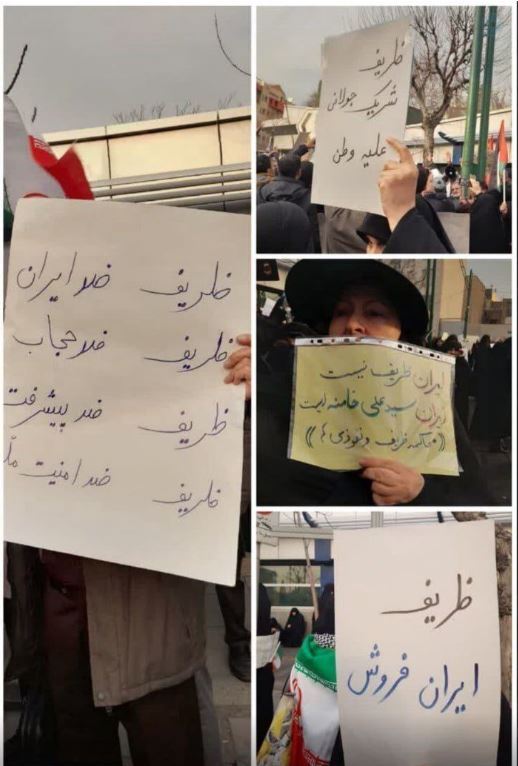 ظریف ضد ایران
ظریف ضد حجاب
ظریف ضد پیشرفت
ظریف ضد امنیت
ظریف
شریک جولانی
علیه وطن
ایران ظریف نیست
ایران سید علی خامنه ایست
«محاکمه ظریف و نفوذی ها»
ظریف
ایران فروش